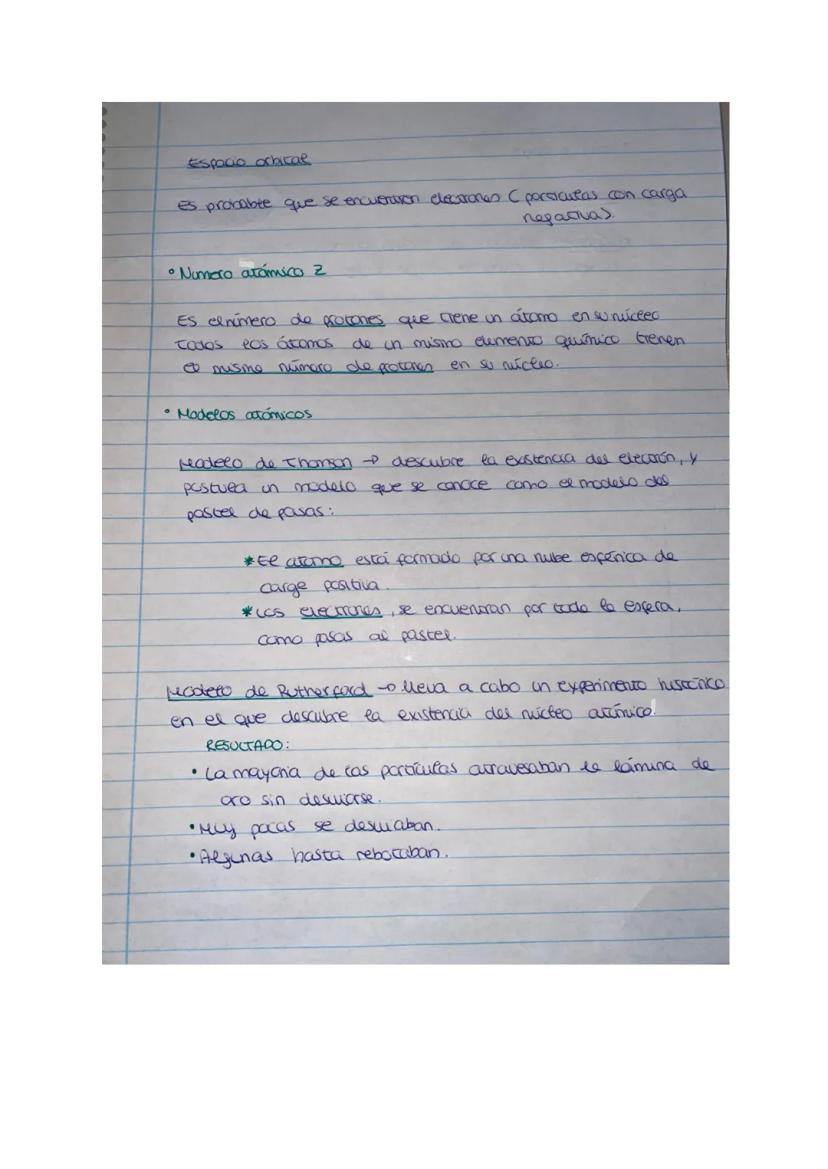 Espacio orbital
Es probable que se encuentren electrones (partículas con carga
negativa).
• Numero atómico Z
Es el número de protones que tiene un átomo en su núcleo
todos los átomos de un mismo elemento químico tienen
el mismo número de protones en su núcleo.
• Modelos atómicos
Modelo de Thomson → descubre la existencia del electrón, y
postula un modelo que se conoce como el modelo del
pastel de pasas:
* El atomo está formado por una nube esférica de
carge positiva.
* Los electrones, se encuentran por toda la esfera,
como pasas al pastel.
Modelo de Rutherford → lleva a cabo un experimento histórico
en el que descubre la existencia del núcleo atómico.
RESULTADO:
• La mayoria de las partículas atravesaban la lámina de
oro sin desviarse.
• Muy pocas se desviaban.
• Algunas hasta rebotaban.